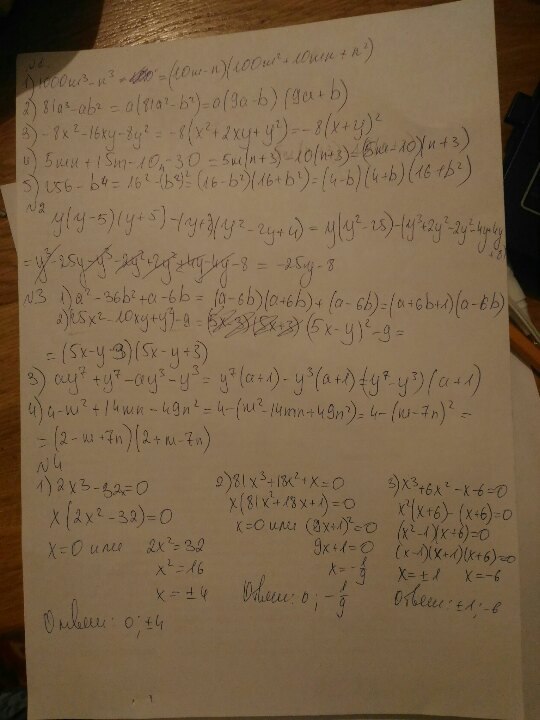 №1.
1) 1000m³ - n³ = (10m-n)(100m²+10mn+n²)
2) 81a³-ab² = a(81a²-b²)=a(9a-b)(9a+b)
3) -8x²-16xy-8y² = -8(x²+2xy+y²)=-8(x+y)²
4) 5mn+15m-10n-30 = 5m(n+3)-10(n+3)=(5m-10)(n+3)
5) 256-b⁴=16²-(b²)²=(16-b²)(16+b²)=(4-b)(4+b)(16+b²)
№2
y(y-5)(y+5)-(y+2)(y²-2y+4) = y(y²-25)-(y³+2y²-2y²-4y+4y
+8)
= y³-25y-y³-2y²+2y²+4y-4y-8 = -25y-8
№3 1) a²-36b²+a-6b = (a-6b)(a+6b)+(a-6b)=(a+6b+1)(a-6b)
2) 25x²-10xy+y²-9 = (5x-y)²-9=
= (5x-y-3)(5x-y+3)
3) ay⁷+y⁷-ay³-y³ = y⁷(a+1)-y³(a+1)=(y⁷-y³)(a+1)
4) 4-m²+14mn-49n²=4-(m²-14mn+49n²)=4-(m-7n)²=
=(2-m+7n)(2+m-7n)
№4
1) 2x³-32=0
x(2x²-32)=0
x=0 или 2x²=32
x²=16
x=±4
Ответ: 0; ±4
2) 81x³+18x²+x=0
x(81x²+18x+1)=0
x=0 или (9x+1)²=0
9x+1=0
x=-1/9
Ответ: 0; -1/9
3) x³+6x²-x-6=0
x²(x+6)-(x+6)=0
(x²-1)(x+6)=0
(x-1)(x+1)(x+6)=0
x=±1 x=-6
Ответ: ±1; -6